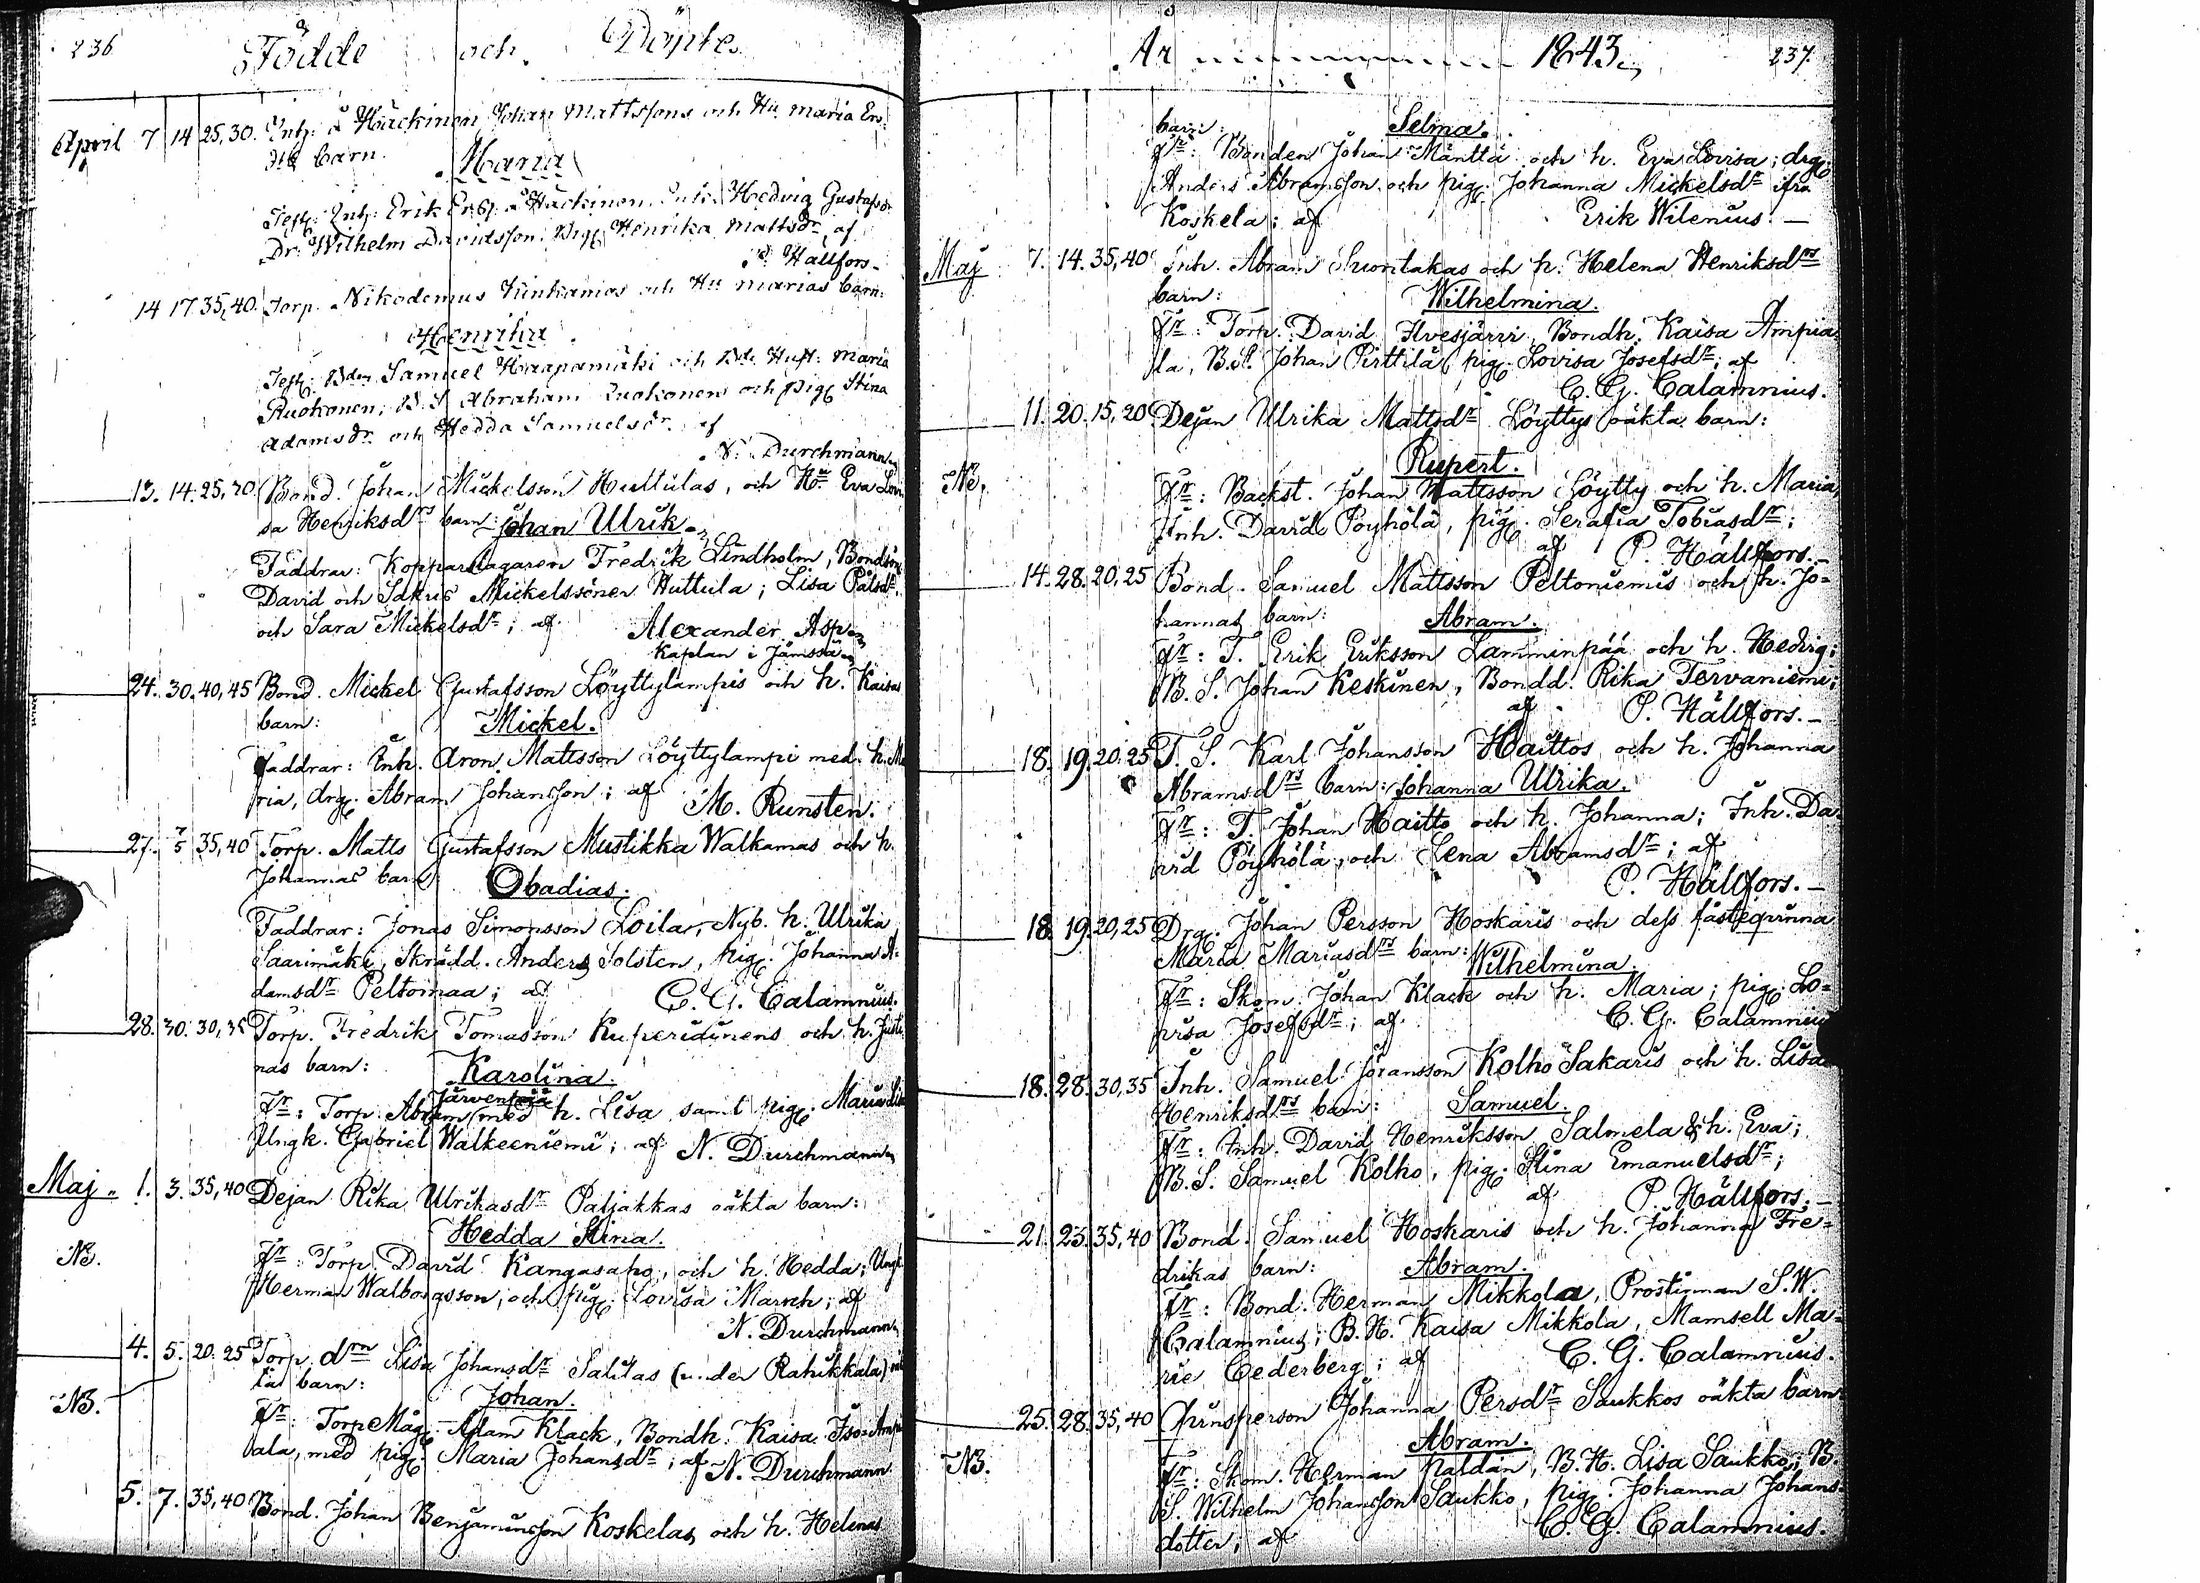 236 Födde och Döpte
April 7 14 25,30. Inh: å Häckinen Johan Mattssons och Hu Maria Ers-
dtr barn.
Maria
Test: Inh: Erik Ersson å Häckinen Enk. Hedvig Gustafsdr
Dr: Wilhelm Davidsson. Pig: Henrika Mattsdr af
P. Hällfors.
14 17 35,40. Torp. Nikodemus och Hu Marias barn:
Henrika
Test: Bden Samuel Haapamäki och Bde Hust: Maria
Ruokonen; B. S Abraham Ruokonen och pig Stina
Adamsdr och Hedda Samuelsdr af
N. Durchman
13. 14. 25,30 Bond. Johan Mickelsson Huttulas, och Hu Eva Lovi
sa Henriksdrs barn: Johan Ulrik.
Faddrar: Kopparslagaren Fredrik Lindholm, Bondsön
David och Sakris Mickelssöner Huttula; Lisa Pålsdr
och Sara Mickelsdr; af Alexander Asp
Kaplan i Jämsä
24. 30. 40,45 Bond. Mickel Gustafsson Löyttylampis och h. Kaisas
barn: Mickel.
Faddrar: Inh. Aron Mattsson Löyttylampi med h. Ma
ria, drg. Abram Johansson; af M. Runsten.
27. 7/5 35,40 Torp. Matts Gustafsson Mustikka Walkamas och h.
Johannas barn: Obadias.
Faddrar: Jonas Simonsson Loilar, Nyb. h. Ulrika
Saarimäki, Skrädd. Anders Solsten, pig. Johanna A-
damsdr Peltomaa; af C. G. Calamnius.
28. 30. 30,35 Torp. Fredrik Tomasson och h. Justi
nas barn: Karolina.
Fr: Torp. Abram Järvenpää med h. Lisa samt pig. Maria Lisa
Ungk. Gabriel Walkeeniemi; af N. Durchman
Maj 1. 3. 35,40 Dejan Rika Ulrikasdr Patjakkas oäkta barn:
Hedda Stina.
NB. Fr: Torp. David Kangasaho, och h. Hedda; Ungk
Herman Walborgsson, och pig. Lovisa March; af
N. Durchman
4. 5. 20. 25 Torp. drn Lisa Johansdr Salilas (under Rahikkala)
barn: Johan.
NB. Fr: Torp Måg. Adam Klack, Bondh. Kaisa Iso-Amp
iala, med pig. Maria Johansdr; af N. Durchmann
5. 7. 35,40 Bond. Johan Benjaminsson Koskelas och h. Helenas
År 1843. 237.
barn: Selma.
Fr: Bonden Johan Mänttä och h. Eva Lovisa; drg.
Anders Abramsson och pig. Johanna Mickelsdr ifrån
Koskela; af Erik Wilenius.
Maj 7. 14. 35,40 Inh. Abram och h. Helena Henriksdrs
barn: Wilhelmina.
Fr: Torp. David Ilvesjärvi, Bondh. Kaisa Ampia
la, B.S. Johan Pirttilä, pig. Lovisa Josefsdr; af
C. G. Calamnius.
11. 20. 15,20 Dejan Ulrika Mattsdr Löyttys oäkta barn:
Rupert.
NB. Fr: Backst. Johan Mattsson Löytty och h. Maria,
Inh. David Pöyhölä, pig. Serafia Tobiasdr;
af P. Hällfors.
14. 28. 20,25 Bond. Samuel Mattsson Peltoniemis och h. Jo-
hannas barn: Abram.
Fr: T. Erik Eriksson Lamminpää och h. Hedvig;
B. S. Johan Keskinen, Bondd. Rika Tervaniemi;
af P. Hällfors.
18. 19. 20. 25 T. S. Karl Johansson Haittos och h. Johanna
Abramsdrs barn: Johanna Ulrika.
Fr: T. Johan Haitto och h. Johanna; Inh. Da-
vid Pöyhölä, och Lena Abramsdr; af
P. Hällfors.
18. 19. 20,25 Drg. Johan Persson Hoskaris och dess fästeqvinna
Maria Mariusdrs barn: Wilhelmina.
Fr: Skom. Johan Klack och h. Maria; pig. Lo-
visa Josefsdr; af C. G. Calamnius
18. 28. 30,35 Inh. Samuel Göransson Kolho Sakaris och h. Lisa
Henriksdrs barn: Samuel.
Fr: Inh. David Henriksson Salmela & h. Eva;
B. S. Samuel Kolho, pig. Stina Emanuelsdr;
af P. Hällfors.
21. 23. 35,40 Bond. Samuel Hoskaris och h. Johanna Fre-
drikas barn: Abram.
Fr: Bond. Herman Mikkola, Prostinnan S. W.
Calamnius; B. H. Kaisa Mikkola, Mamsell Ma-
rie Cederberg; af C. G. Calamnius.
25. 28. 35,40 Qvinsperson Johanna Persdr Saukkos oäkta barn
Abram.
NB. Fr: Skom. Herman Paldán, B. H. Lisa Saukko; B.
S. Wilhelm Johansson Saukko, pig. Johanna Johans-
dotter; af C. G. Calamnius.